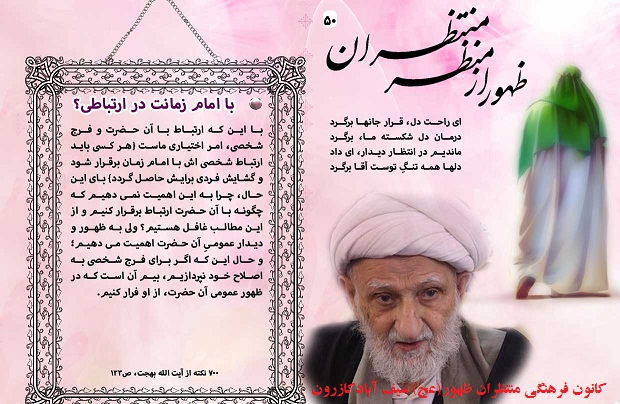 ۵۰
ظهور از منظر منتظران
ای راحت دل، قرار جانها برگرد
درمان دل شکسته ما، برگرد
ماندیم در انتظار دیدار، ای داد
دلها همه تنگ توست آقا برگرد
با امام زمانت در ارتباطی؟
با این که ارتباط با آن حضرت و فرج
شخصی، امر اختیاری ماست {هر کسی باید
ارتباط شخصی اش با امام زمان برقرار شود
و گشایش فردی برایش حاصل گردد} بای این
حال، چرا به این اهمیت نمی دهیم که
چگونه با آن حضرت ارتباط برقرار کنیم و از
این مطالب غافل هستیم؟ ولی به ظهور و
دیدار عمومی آن حضرت اهمیت می دهیم؛
و حال این که اگر برای فرج شخصی به
اصلاح خود نپردازیم، بیم آن است که در
ظهور عمومی آن حضرت، از او فرار کنیم.
۷۰۰ نکته از آیت الله بهجت، ص۱۲۳
کانون فرهنگی منتظران ظهور(عج) سیف آباد کازرون